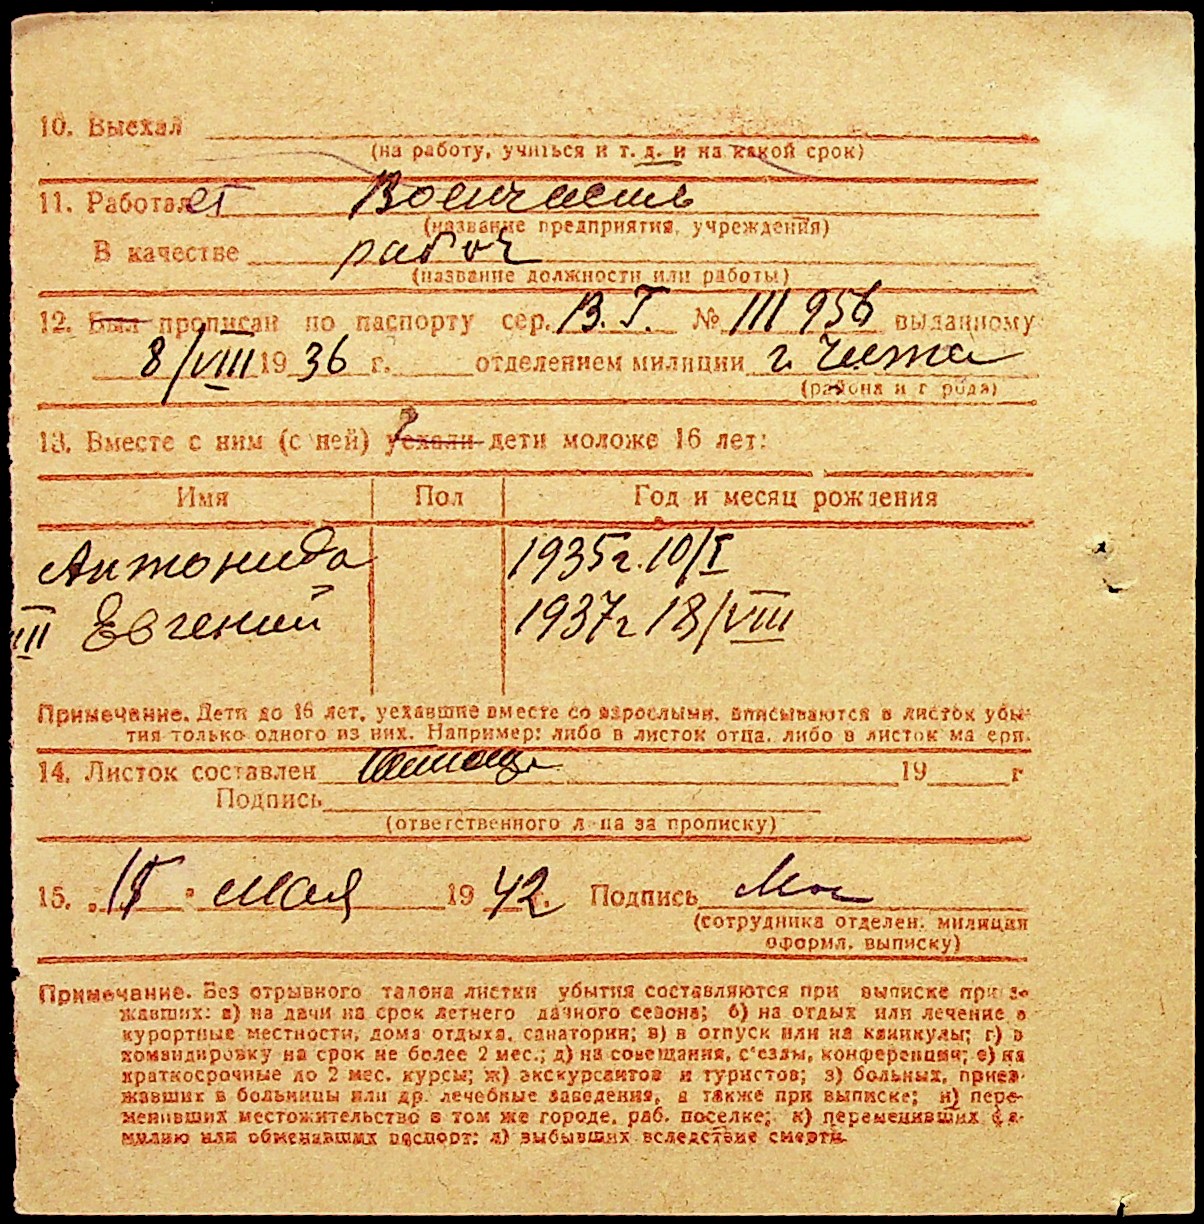 10. Выехал
(на работу, учиться и т. д. и на какой срок)
11. Работал ет Воинчасть
(название предприятия, учреждения)
В качестве рабоч
(название должности или работы)
12. Был прописан по паспорту сер. В.Г. № III 956 выданному
8/VIII 1936 г. отделением милиции г. Чита
(района и г рода)
13. Вместе с ним (с ней) уехали дети моложе 16 лет:
Имя Пол Год и месяц рождения
Антонида 1935г. 10/I
III Евгений 1937г 18/VIII
Примечание. Дети до 16 лет, уехавшие вместе со взрослыми, вписываются в листок убы-
тия только одного из них. Например: либо в листок отца, либо в листок ма ери.
14. Листок составлен 19 г
Подпись
(ответственного л ца за прописку)
15. „ " мая 1942 г. Подпись
(сотрудника отделен. милиции
оформл. выписку)
Примечание. Без отрывного талона листки убытия составляются при выписке приез-
жавших: а) на дачи на срок летнего дачного сезона; б) на отдых или лечение в
курортные местности, дома отдыха, санатории; в) в отпуск или на каникулы; г) в
командировку на срок не более 2 мес.; д) на совещания, с'езды, конференции; е) на
краткосрочные до 2 мес. курсы; ж) экскурсантов и туристов; з) больных, приез-
жавших в больницы или др. лечебные заведения, а также при выписке; и) пере-
менивших местожительство в том же городе, раб. поселке; к) переменивших фа-
милию или обменявших паспорт; л) выбывших вследствие смерти.